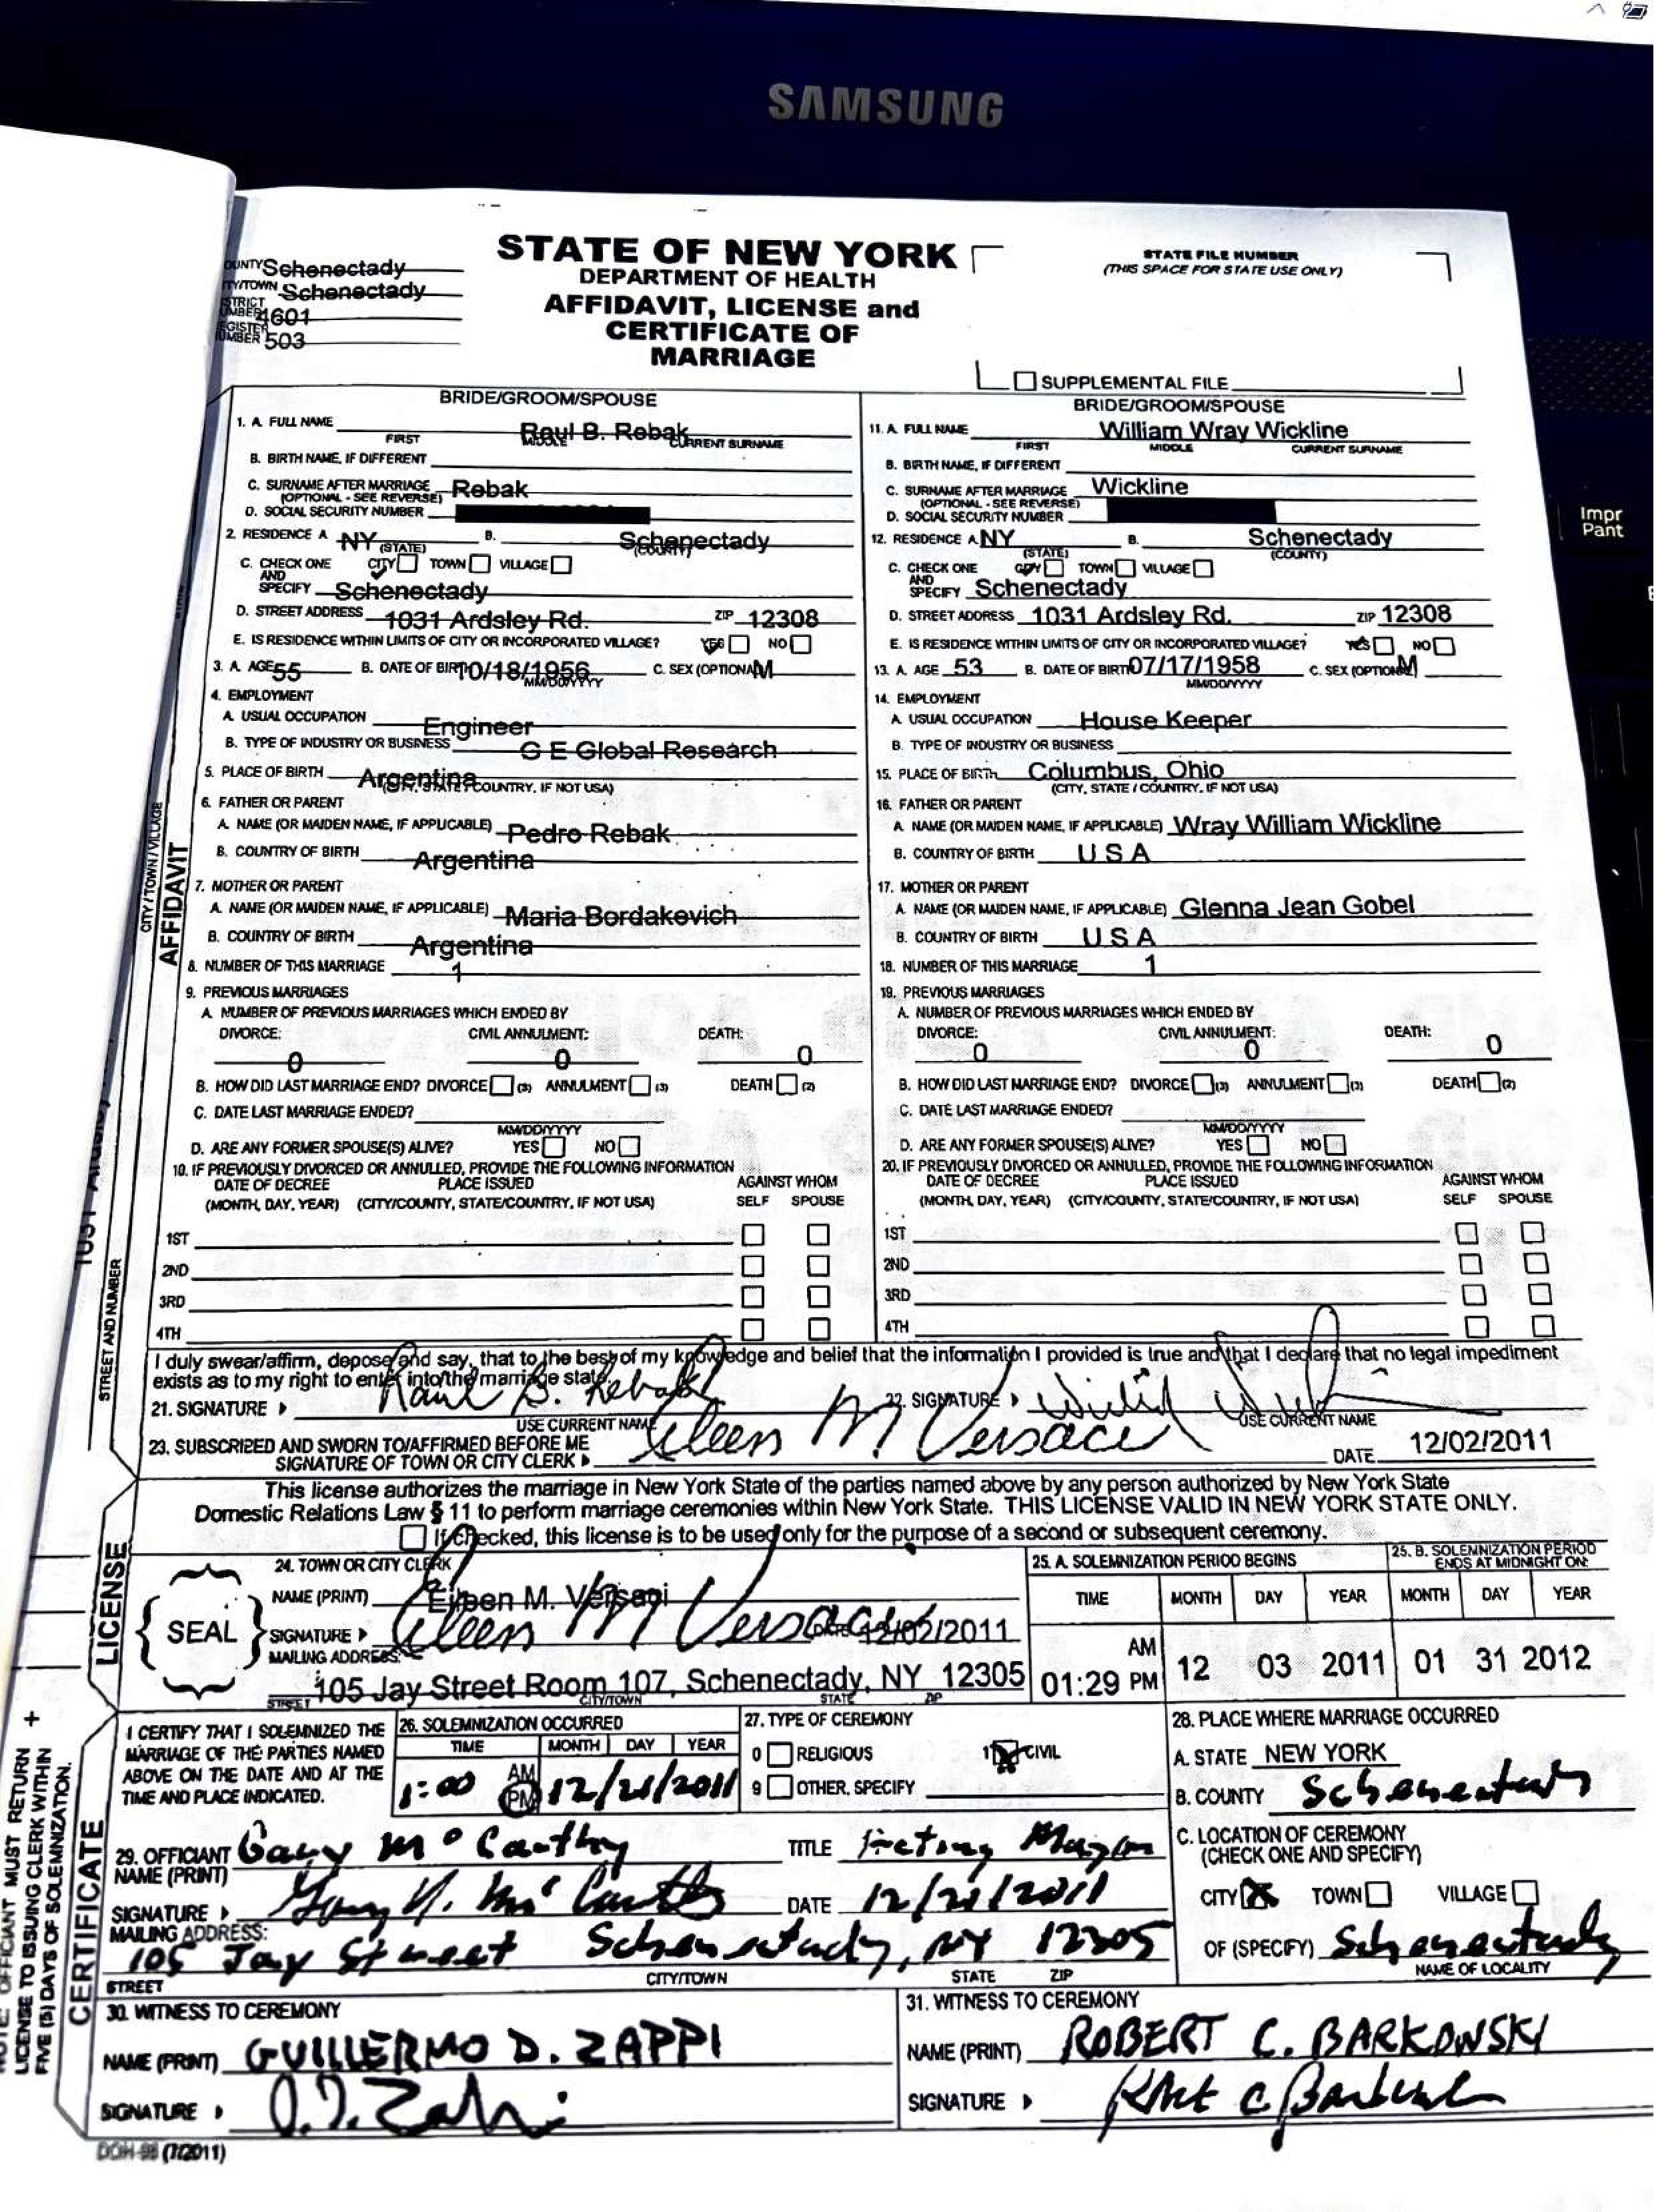 SAMSUNG
Impr
Pant
STATE OF NEW YORK
DEPARTMENT OF HEALTH
AFFIDAVIT, LICENSE and
CERTIFICATE OF
MARRIAGE
STATE FILE NUMBER
(THIS SPACE FOR STATE USE ONLY)
OUNTY Schenectady
TY/TOWN Schenectady
STRICT
UMBER 4601
EGISTER
UMBER 503
SUPPLEMENTAL FILE
BRIDE/GROOM/SPOUSE
1. A. FULL NAME Raul B. Rebak
FIRST MIDDLE CURRENT SURNAME
B. BIRTH NAME, IF DIFFERENT
C. SURNAME AFTER MARRIAGE Rebak
(OPTIONAL - SEE REVERSE)
D. SOCIAL SECURITY NUMBER
2. RESIDENCE A. NY B. Schenectady
(STATE) (COUNTY)
C. CHECK ONE CITY TOWN VILLAGE
AND
SPECIFY Schenectady
D. STREET ADDRESS 1031 Ardsley Rd. ZIP 12308
E. IS RESIDENCE WITHIN LIMITS OF CITY OR INCORPORATED VILLAGE? YES NO
3. A. AGE 55 B. DATE OF BIRTH 10/18/1956 C. SEX (OPTIONAL) M
MM/DD/YYYY
4. EMPLOYMENT
A. USUAL OCCUPATION Engineer
B. TYPE OF INDUSTRY OR BUSINESS G E Global Research
5. PLACE OF BIRTH Argentina
(CITY, STATE / COUNTRY, IF NOT USA)
6. FATHER OR PARENT
A. NAME (OR MAIDEN NAME, IF APPLICABLE) Pedro Rebak
B. COUNTRY OF BIRTH Argentina
7. MOTHER OR PARENT
A. NAME (OR MAIDEN NAME, IF APPLICABLE) Maria Bordakevich
B. COUNTRY OF BIRTH Argentina
8. NUMBER OF THIS MARRIAGE 1
9. PREVIOUS MARRIAGES
A. NUMBER OF PREVIOUS MARRIAGES WHICH ENDED BY
DIVORCE: CIVIL ANNULMENT: DEATH:
0 0 0
B. HOW DID LAST MARRIAGE END? DIVORCE (3) ANNULMENT (3) DEATH (2)
C. DATE LAST MARRIAGE ENDED?
MM/DD/YYYY
D. ARE ANY FORMER SPOUSE(S) ALIVE? YES NO
10. IF PREVIOUSLY DIVORCED OR ANNULLED, PROVIDE THE FOLLOWING INFORMATION
DATE OF DECREE PLACE ISSUED AGAINST WHOM
(MONTH, DAY, YEAR) (CITY/COUNTY, STATE/COUNTRY, IF NOT USA) SELF SPOUSE
1ST
2ND
3RD
4TH
BRIDE/GROOM/SPOUSE
11. A. FULL NAME William Wray Wickline
FIRST MIDDLE CURRENT SURNAME
B. BIRTH NAME, IF DIFFERENT
C. SURNAME AFTER MARRIAGE Wickline
(OPTIONAL - SEE REVERSE)
D. SOCIAL SECURITY NUMBER
12. RESIDENCE A. NY B. Schenectady
(STATE) (COUNTY)
C. CHECK ONE CITY TOWN VILLAGE
AND
SPECIFY Schenectady
D. STREET ADDRESS 1031 Ardsley Rd. ZIP 12308
E. IS RESIDENCE WITHIN LIMITS OF CITY OR INCORPORATED VILLAGE? YES NO
13. A. AGE 53 B. DATE OF BIRTH 07/17/1958 C. SEX (OPTIONAL) M
MM/DD/YYYY
14. EMPLOYMENT
A. USUAL OCCUPATION House Keeper
B. TYPE OF INDUSTRY OR BUSINESS
15. PLACE OF BIRTH Columbus, Ohio
(CITY, STATE / COUNTRY, IF NOT USA)
16. FATHER OR PARENT
A. NAME (OR MAIDEN NAME, IF APPLICABLE) Wray William Wickline
B. COUNTRY OF BIRTH U S A
17. MOTHER OR PARENT
A. NAME (OR MAIDEN NAME, IF APPLICABLE) Glenna Jean Gobel
B. COUNTRY OF BIRTH U S A
18. NUMBER OF THIS MARRIAGE 1
19. PREVIOUS MARRIAGES
A. NUMBER OF PREVIOUS MARRIAGES WHICH ENDED BY
DIVORCE: CIVIL ANNULMENT: DEATH:
0 0 0
B. HOW DID LAST MARRIAGE END? DIVORCE (3) ANNULMENT (3) DEATH (2)
C. DATE LAST MARRIAGE ENDED?
MM/DD/YYYY
D. ARE ANY FORMER SPOUSE(S) ALIVE? YES NO
20. IF PREVIOUSLY DIVORCED OR ANNULLED, PROVIDE THE FOLLOWING INFORMATION
DATE OF DECREE PLACE ISSUED AGAINST WHOM
(MONTH, DAY, YEAR) (CITY/COUNTY, STATE/COUNTRY, IF NOT USA) SELF SPOUSE
1ST
2ND
3RD
4TH
I duly swear/affirm, depose and say, that to the best of my knowledge and belief that the information I provided is true and that I declare that no legal impediment
exists as to my right to enter into the marriage state.
21. SIGNATURE Raul B. Rebak 22. SIGNATURE
USE CURRENT NAME USE CURRENT NAME
23. SUBSCRIBED AND SWORN TO/AFFIRMED BEFORE ME
SIGNATURE OF TOWN OR CITY CLERK Eileen M Versaci DATE 12/02/2011
This license authorizes the marriage in New York State of the parties named above by any person authorized by New York State
Domestic Relations Law § 11 to perform marriage ceremonies within New York State. THIS LICENSE VALID IN NEW YORK STATE ONLY.
If checked, this license is to be used only for the purpose of a second or subsequent ceremony.
SEAL
24. TOWN OR CITY CLERK
NAME (PRINT) Eileen M. Versaci
SIGNATURE Eileen M Versaci DATE 12/02/2011
MAILING ADDRESS:
105 Jay Street Room 107, Schenectady, NY 12305
STREET CITY/TOWN STATE ZIP
25. A. SOLEMNIZATION PERIOD BEGINS
25. B. SOLEMNIZATION PERIOD
ENDS AT MIDNIGHT ON:
TIME MONTH DAY YEAR MONTH DAY YEAR
AM
01:29 PM 12 03 2011 01 31 2012
I CERTIFY THAT I SOLEMNIZED THE
MARRIAGE OF THE PARTIES NAMED
ABOVE ON THE DATE AND AT THE
TIME AND PLACE INDICATED.
26. SOLEMNIZATION OCCURRED
TIME MONTH DAY YEAR
1:00 AM PM 12/21/2011
27. TYPE OF CEREMONY
0 RELIGIOUS 1 CIVIL
9 OTHER, SPECIFY
28. PLACE WHERE MARRIAGE OCCURRED
A. STATE NEW YORK
B. COUNTY Schenectady
C. LOCATION OF CEREMONY
(CHECK ONE AND SPECIFY)
CITY TOWN VILLAGE
OF (SPECIFY) Schenectady
NAME OF LOCALITY
29. OFFICIANT
NAME (PRINT) Gary McCarthy TITLE Acting Mayor
SIGNATURE Gary R. McCarthy DATE 12/21/2011
MAILING ADDRESS:
105 Jay Street Schenectady, NY 12305
STREET CITY/TOWN STATE ZIP
30. WITNESS TO CEREMONY
NAME (PRINT) GUILLERMO D. ZAPPI
SIGNATURE
31. WITNESS TO CEREMONY
NAME (PRINT) ROBERT C. BARKOWSKI
SIGNATURE
DOH-98 (7/2011)
CITY / TOWN / VILLAGE
AFFIDAVIT
STREET AND NUMBER
LICENSE
CERTIFICATE
NOTE: OFFICIANT MUST RETURN
LICENSE TO ISSUING CLERK WITHIN
FIVE (5) DAYS OF SOLEMNIZATION.